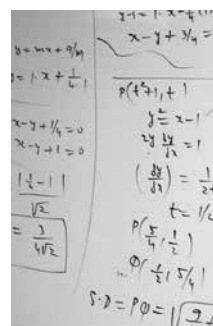 y = mx + a/m
y = 1·x + 1/4·1
x-y+1/4=0
x-y+1=0
|1/4-1|
√2
= 3/4√2
x-y+3/4=
P(t²+1, t)
y²=x-1
2y dy/dx = 1
(dy/dx) = 1/2
t=1/2
P(5/4, 1/2)
Q(1/2, 5/4)
S·D=PQ=√9